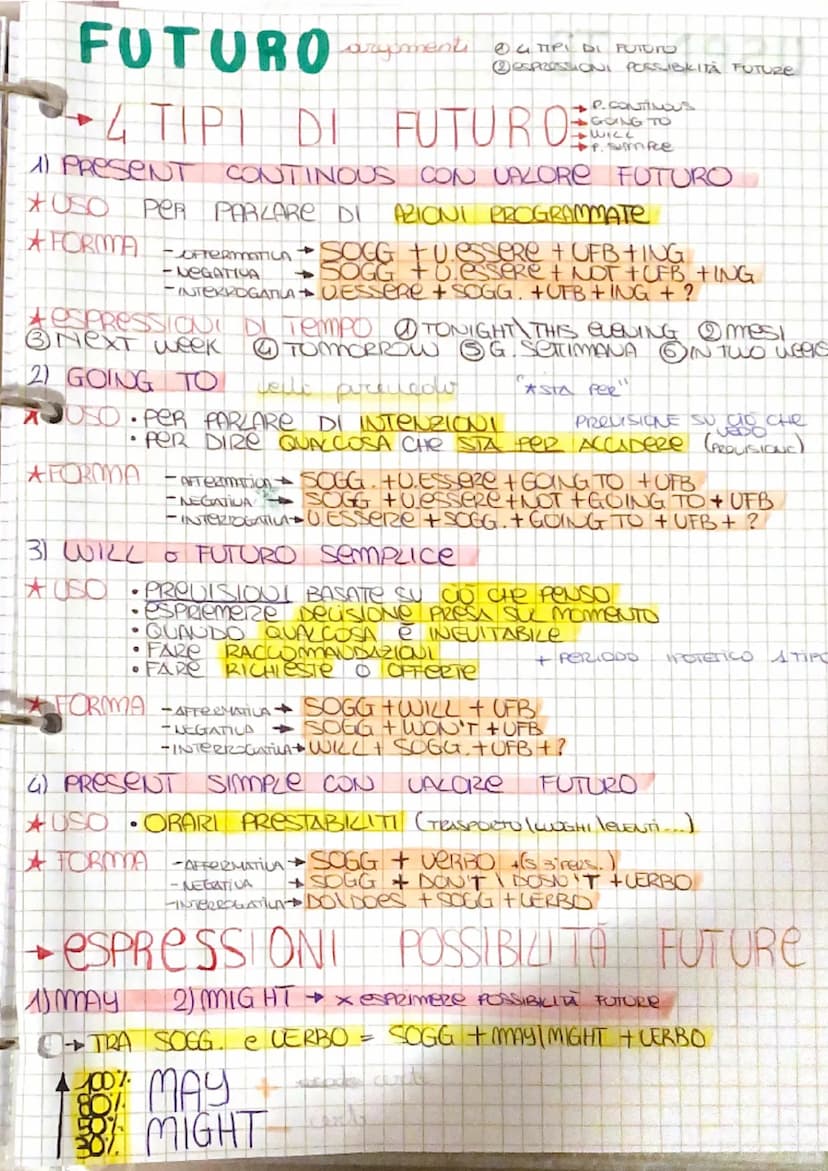 FUTURO argomenti ① 4 TIPI DI FUTURO
② ESPRESSIONI POSSIBILITÀ FUTURE
→ 4 TIPI DI FUTURO → P. CONTINOUS
→ GOING TO
→ WILL
→ P. SIMPLE
1) PRESENT CONTINOUS CON VALORE FUTURO
* USO PER PARLARE DI AZIONI PROGRAMMATE
* FORMA - AFFERMATIVA → SOGG + V. ESSERE + VFB + ING
- NEGATIVA → SOGG + V. ESSERE + NOT + VFB + ING
- INTERROGATIVA → V. ESSERE + SOGG. + VFB + ING + ?
* ESPRESSIONI DI TEMPO ① TONIGHT\THIS EVENING ② MESI
③ NEXT WEEK ④ TOMORROW ⑤ G. SETTIMANA ⑥ IN TWO WEEKS
2) GOING TO "*STA PER"
* USO • PER PARLARE DI INTENZIONI PREVISIONE SU CIÒ CHE VEDO
• PER DIRE QUALCOSA CHE STA PER ACCADERE (PREVISIONE)
* FORMA - AFFERMATIVA → SOGG. + V. ESSERE + GOING TO + VFB
- NEGATIVA → SOGG + V. ESSERE + NOT + GOING TO + VFB
- INTERROGATIVA → V. ESSERE + SOGG. + GOING TO + VFB + ?
3) WILL o FUTURO SEMPLICE
* USO • PREVISIONI BASATE SU CIÒ CHE PENSO
• ESPRIEMERE DECISIONE PRESA SUL MOMENTO
• QUANDO QUALCOSA È INEVITABILE
• FARE RACCOMANDAZIONI + PERIODO IPOTETICO 1 TIPO
• FARE RICHIESTE O OFFERTE
* FORMA - AFFERMATIVA → SOGG + WILL + VFB
- NEGATIVA → SOGG + WON'T + VFB
- INTERROGATIVA → WILL + SOGG. + VFB + ?
4) PRESENT SIMPLE CON VALORE FUTURO
* USO • ORARI PRESTABILITI (TRASPORTO\LUOGHI\EVENTI...)
* FORMA - AFFERMATIVA → SOGG + VERBO + (S 3ª PERS.)
- NEGATIVA → SOGG + DON'T \ DOSN'T + VERBO
- INTERROGATIVA → DO\DOES + SOGG + VERBO
→ ESPRESSIONI POSSIBILITÀ FUTURE
1) MAY 2) MIGHT → x ESPRIMERE POSSIBILITÀ FUTURE
→ TRA SOGG. e VERBO = SOGG + MAY\MIGHT + VERBO
100% MAY +
80%
MIGHT -